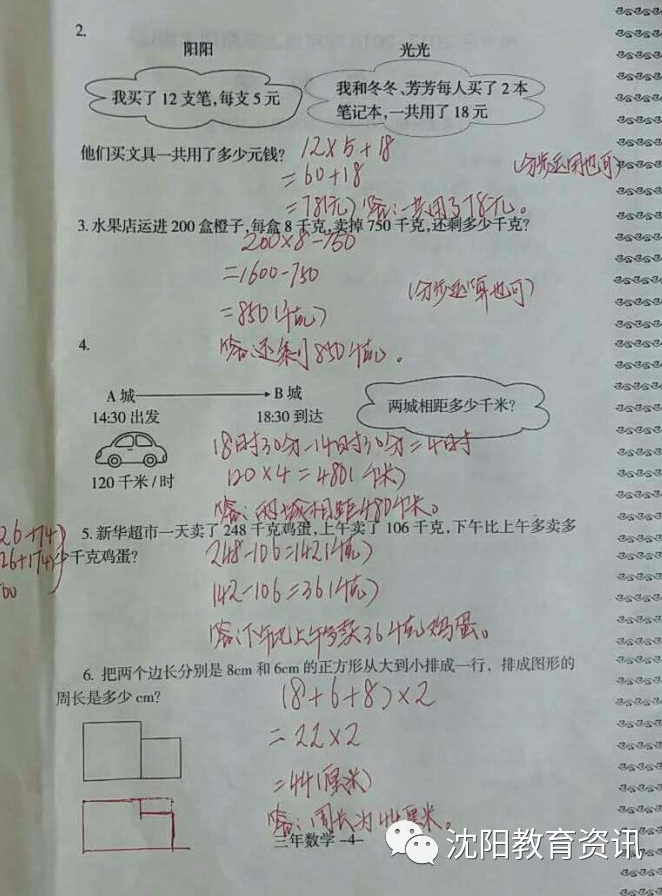 2.
阳阳
光光
我买了12支笔,每支5元
我和冬冬、芳芳每人买了2本
笔记本,一共用了18元
他们买文具一共用了多少元钱?
12×5+18
=60+18
=78(元)
答:一共用了78元。
(分步运用也可)
3.水果店运进200盒橙子,每盒8千克,卖掉750千克,还剩多少千克?
200×8-750
=1600-750
=850(千克)
(分步运算也可)
答:还剩850千克。
4.
A城
B城
14:30出发
18:30到达
两城相距多少千米?
120千米/时
18时30分-14时30分=4时
120×4=480(千米)
答:两城相距480千米。
5.新华超市一天卖了248千克鸡蛋,上午卖了106千克,下午比上午多卖多
少千克鸡蛋?
26+174)
26+174)
248-106=142(千克)
142-106=36(千克)
答:下午比上午多卖36千克鸡蛋。
6. 把两个边长分别是8cm和6cm的正方形从大到小排成一行，排成图形的
周长是多少cm?
(8+6+8)×2
=22×2
=44(厘米)
答:周长为44厘米。
三年数学-4-
沈阳教育资讯